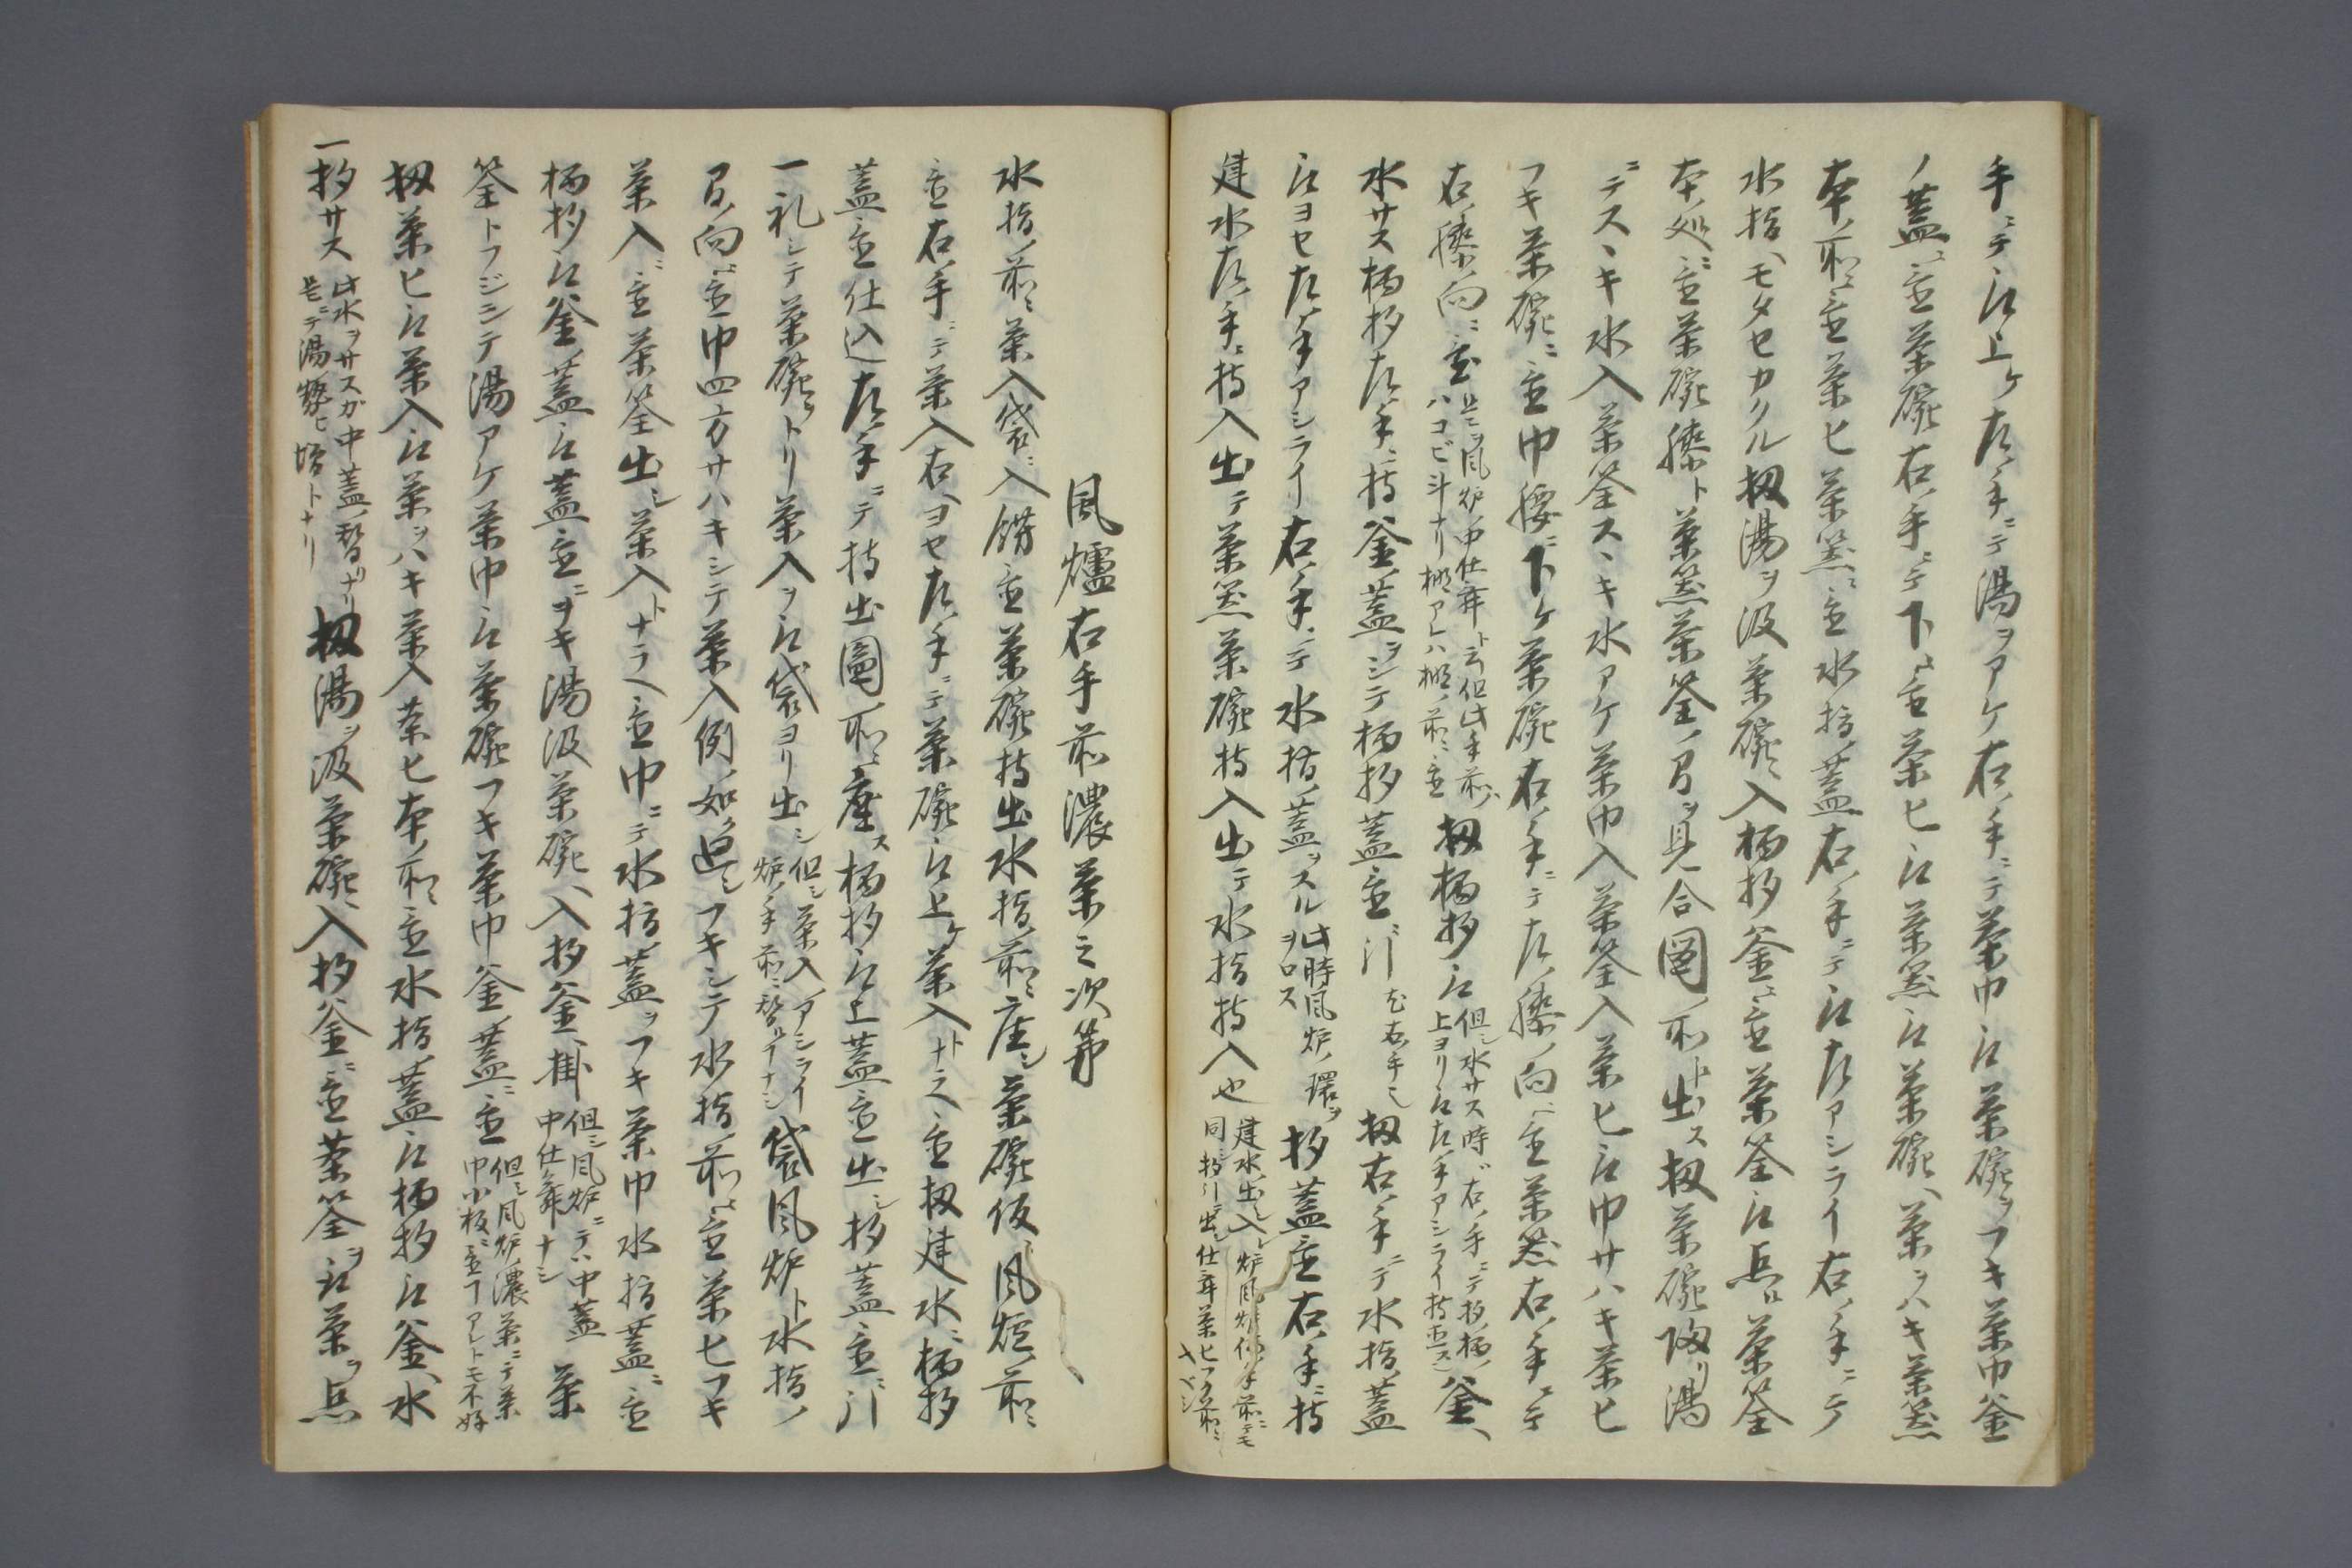 手ニテ取上ケ左ノ手ニテ湯ヲアケ右ノ手ニテ茶巾取茶碗ヲフキ茶巾釜
ノ蓋ニ置茶碗右ノ手ニテ下ニ置茶ヒ取茶入取茶碗ヘ茶ヲハキ茶入
本ノ所ニ置茶ヒ茶入ニ置水指ノ蓋右ノ手ニテ取左アシライ右ノ手ニテ
水指ヘモタセカクル扨湯ヲ汲茶碗ヘ入柄杓釜ニ置茶筌取点ル茶筌
本ノ処ニ置茶碗膝ト茶入茶筌ノ間ヲ見合図ノ所ト出ス扨茶碗取リ湯
ニテスヽキ水入茶筌スヽキ水アケ茶巾入茶筌入茶ヒ取巾サハキ茶ヒ
フキ茶碗ニ置巾腰ニ下ケ茶碗右ノ手ニテ左ノ膝ノ向ニ置茶入右ノ手ニテ
右ノ膝ノ向ニ置 是ヲ風炉ノ中仕舞ト云但此手前ハ
ハコビ斗ナリ棚アレハ棚ノ前ニ置 扨柄杓取 但シ水サス時ハ右ノ手ニテ杓ノ柄ノ
上ヨリ取左ノ手アシライ持直ス 釜ヘ
水サス柄杓左ノ手ニ持釜ノ蓋ヲシテ柄杓蓋置ニ引 扨右ノ手ニテ水指ノ蓋
取ヨセ左ノ手アシライ右ノ手ニテ水指ノ蓋ヲスル 此時風炉ノ環ヲ
ヲロス 杓蓋置右ノ手ニ持
建水左ノ手ニ持入出テ茶入茶碗持入出テ水指持入也
風爐右手前濃茶之次第
水指ノ前ニ茶入袋ニ入餝置茶碗持出水指ノ前ニ座シ茶碗仮ニ風炉ノ前ニ
置右ノ手ニテ茶入右ヘヨセ左ノ手ニテ茶碗取上ケ茶入トナラヘ置扨建水ニ柄杓
蓋置仕込左ノ手ニテ持出圖ノ所ニ座ス柄杓取上蓋置出シ杓蓋置ニ引
一礼シテ茶碗ヲトリ茶入ヲ取袋ヨリ出シ 但シ茶入ノアシライ
炉ノ手前ニ替リナシ 袋風炉ト水指ノ
間ノ向ニ置巾四方サハキシテ茶入例ノ如ク廻シフキシテ水指ノ前ニ置茶ヒフキ
茶入ニ置茶筌出シ茶入トナラヘ置巾ニテ水指ノ蓋ヲフキ茶巾水指ノ蓋ニ置
柄杓取釜ノ蓋取蓋置ニヲキ湯汲茶碗ヘ入杓釜ヘ掛 但シ風炉ニテハ中蓋
中仕舞ナシ 茶
筌トフジシテ湯アケ茶巾取茶碗フキ茶巾釜ノ蓋ニ置 但シ風炉濃茶ニテ茶
巾小板ニ置フアレトモ不好
扨茶ヒ取茶入取茶ヲハキ茶入茶ヒ本ノ所ニ置水指ノ蓋取柄杓取釜ヘ水
一杓サス 此水ヲサスガ中蓋ノ替リナリ
是ニテ湯 扨湯ヲ汲茶碗ヘ入杓釜ニ置茶筌ヲ取茶ヲ点